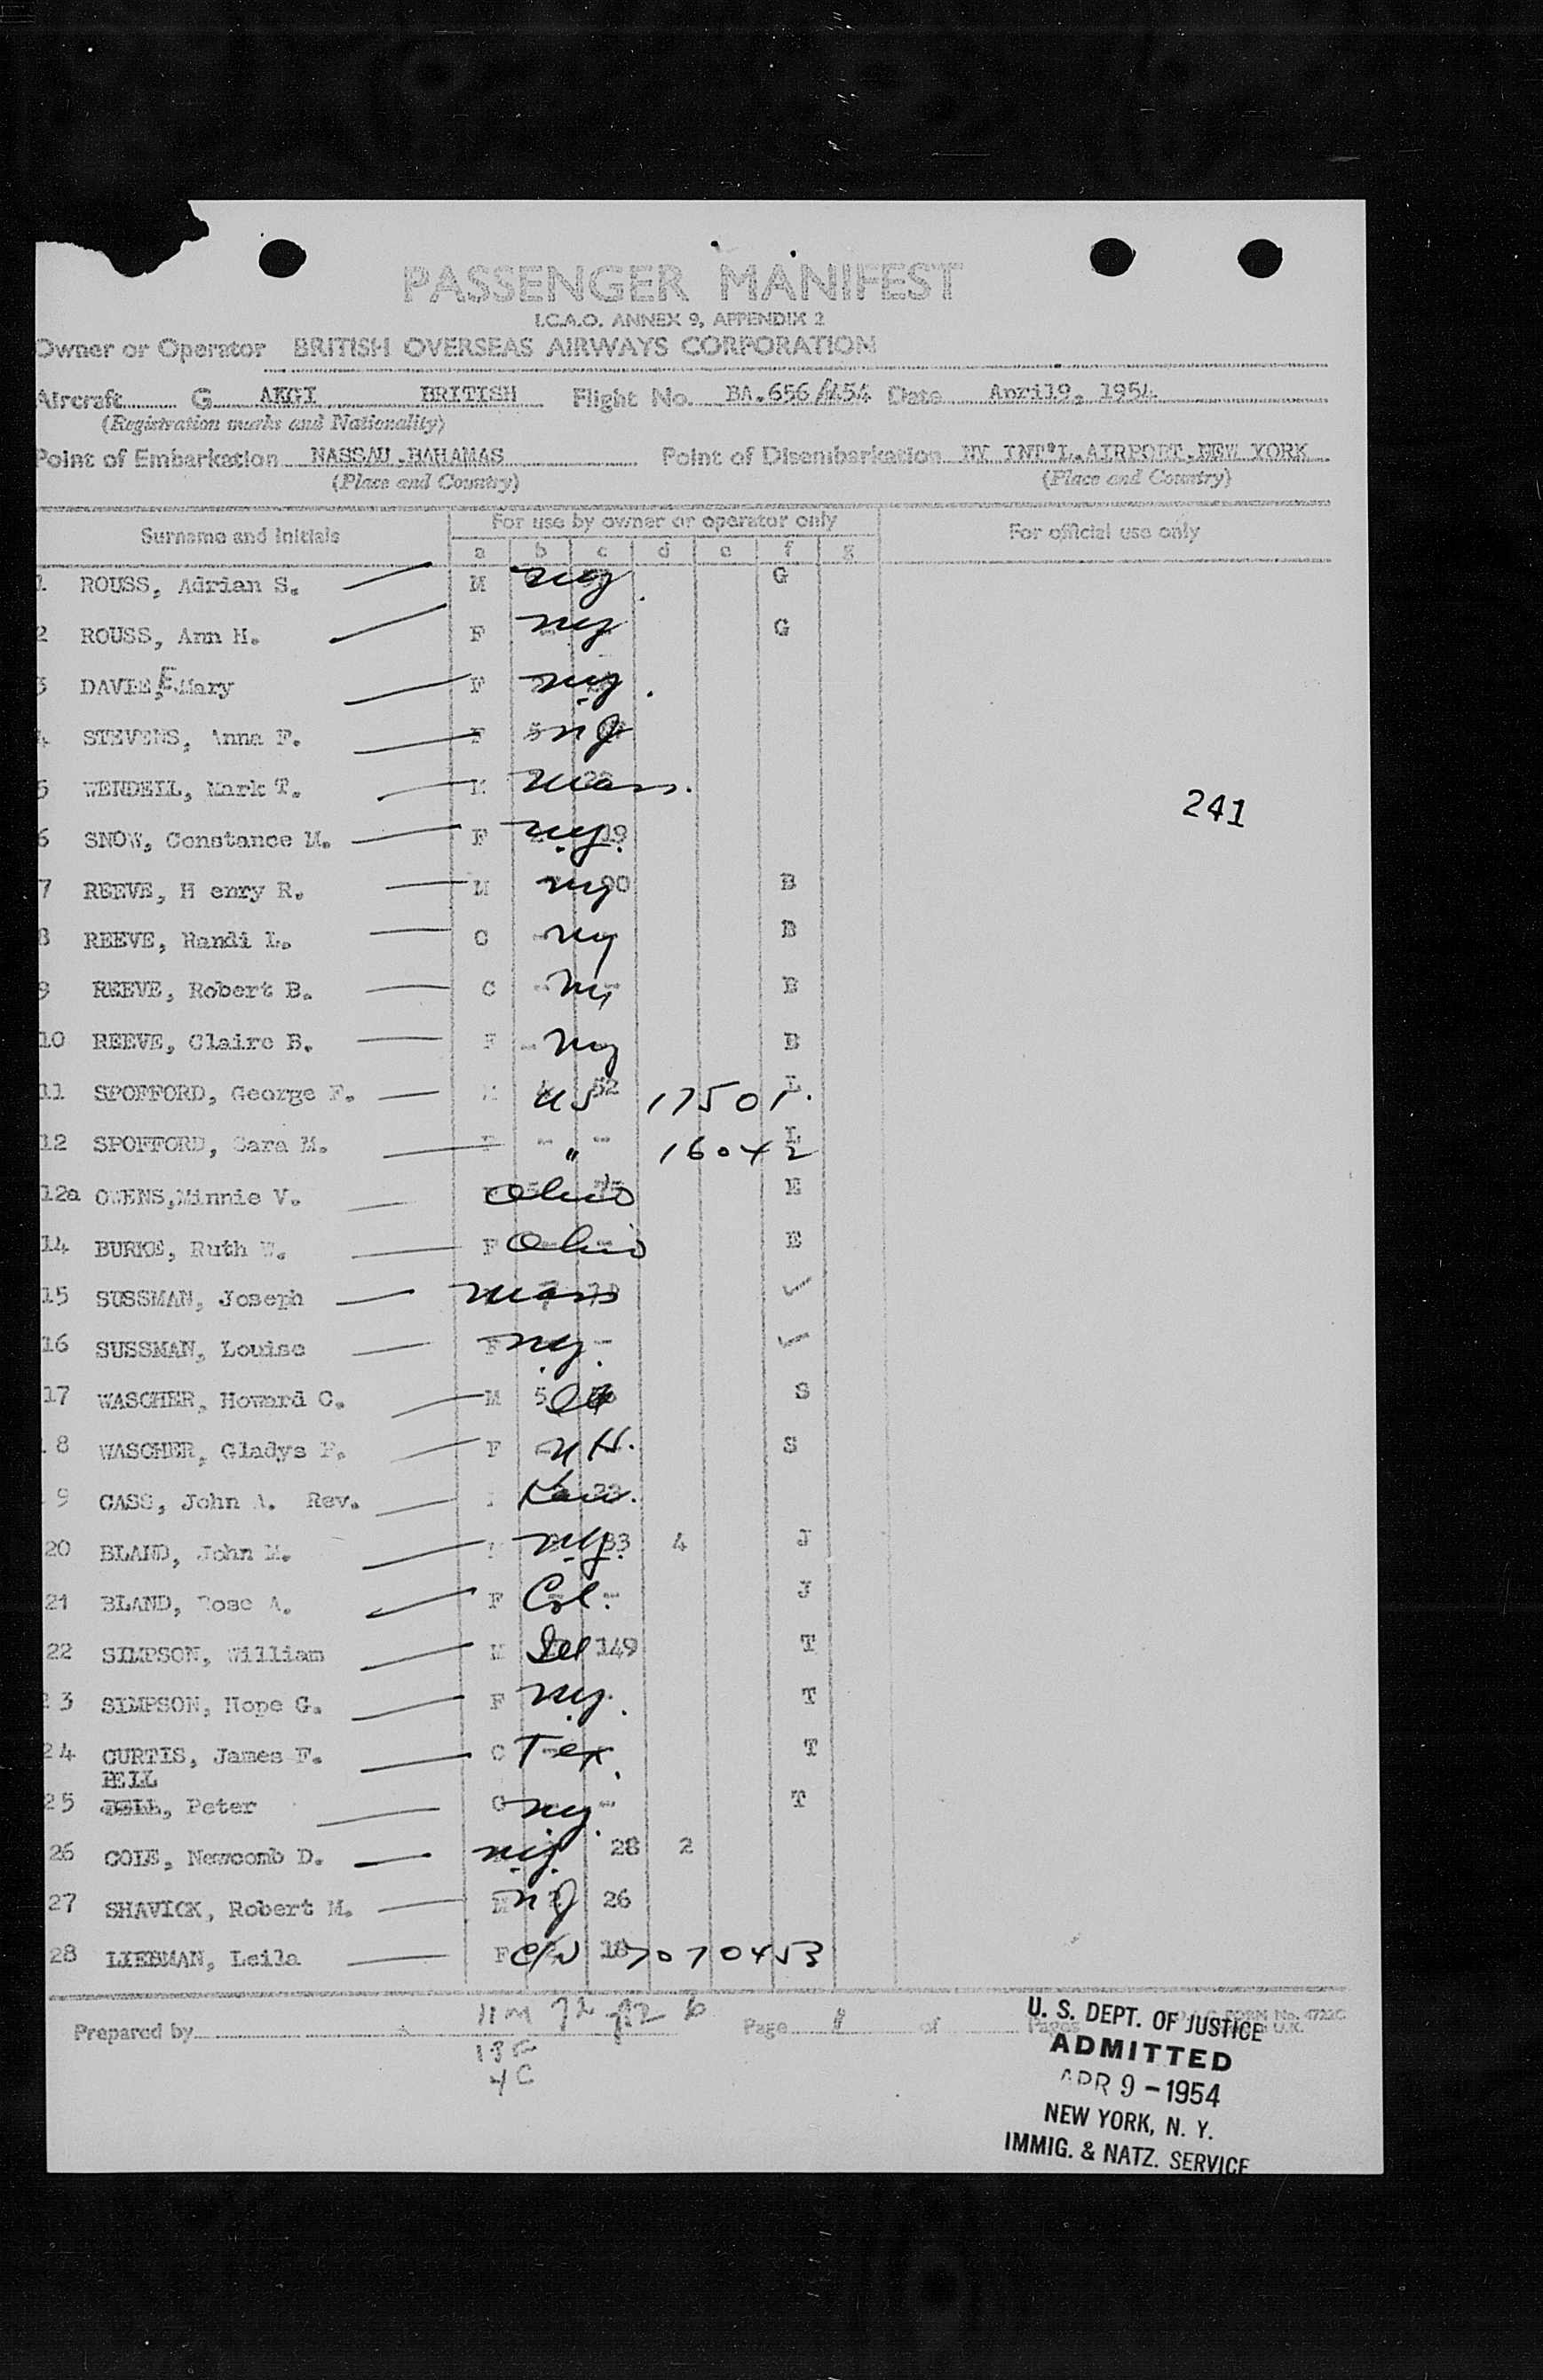 PASSENGER MANIFEST
I.C.A.O. ANNEX 9, APPENDIX 2
Owner or Operator BRITISH OVERSEAS AIRWAYS CORPORATION
Aircraft G AKGI BRITISH Flight No. BA.656/454 Date April9, 1954
(Registration marks and Nationality)
Point of Embarkation NASSAU,BAHAMAS Point of Disembarkation NY INT'L.AIRPORT,NEW YORK
(Place and Country) (Place and Country)
Surname and Initials For use by owner or operator only For official use only
a b c d e f g
1 ROUSS, Adrian S. M ny. G
2 ROUSS, Ann H. F ny G
3 DAVIE, E.Mary F ny.
4 STEVENS, Anna F. F 5 nJ
5 WENDELL, Mark T. M Mass.
241
6 SNOW, Constance M. F n.y. 19
7 REEVE, H enry R. M ny 90 B
8 REEVE, Randi L. C - ny - B
9 REEVE, Robert B. C - ny - B
10 REEVE, Claire B. F - ny B
11 SPOFFORD, George F. M US 52 17501. L
12 SPOFFORD, Sara M. F - " - 16042 L
12a OWENS,Minnie V. Ohio E
14 BURKE, Ruth W. F Ohio E
15 SUSSMAN, Joseph Mass ✓
16 SUSSMAN, Louise F n.y. - ✓
17 WASCHER, Howard C. M 5 S
18 WASCHER, Gladys F. F - NH. S
19 CASS, John A. Rev. Kan.
20 BLAND, John M. M n.y. 33 4 J
21 BLAND, Rose A. F Col. - J
22 SIMPSON, William M Ill 149 T
23 SIMPSON, Hope G. F n.y. T
24 CURTIS, James F. C Tex. T
BELL
25 Peter C ny. - T
26 COLE, Newcomb D. n.y. 28 2
27 SHAVICK, Robert M. M nJ 26
28 LIEBMAN, Leila F C/N 18 7070453
11M
Prepared by Page 1 of Pages FORM No. 4722C
13F
4C
U. S. DEPT. OF JUSTICE
ADMITTED
APR 9 - 1954
NEW YORK, N. Y.
IMMIG. & NATZ. SERVICE